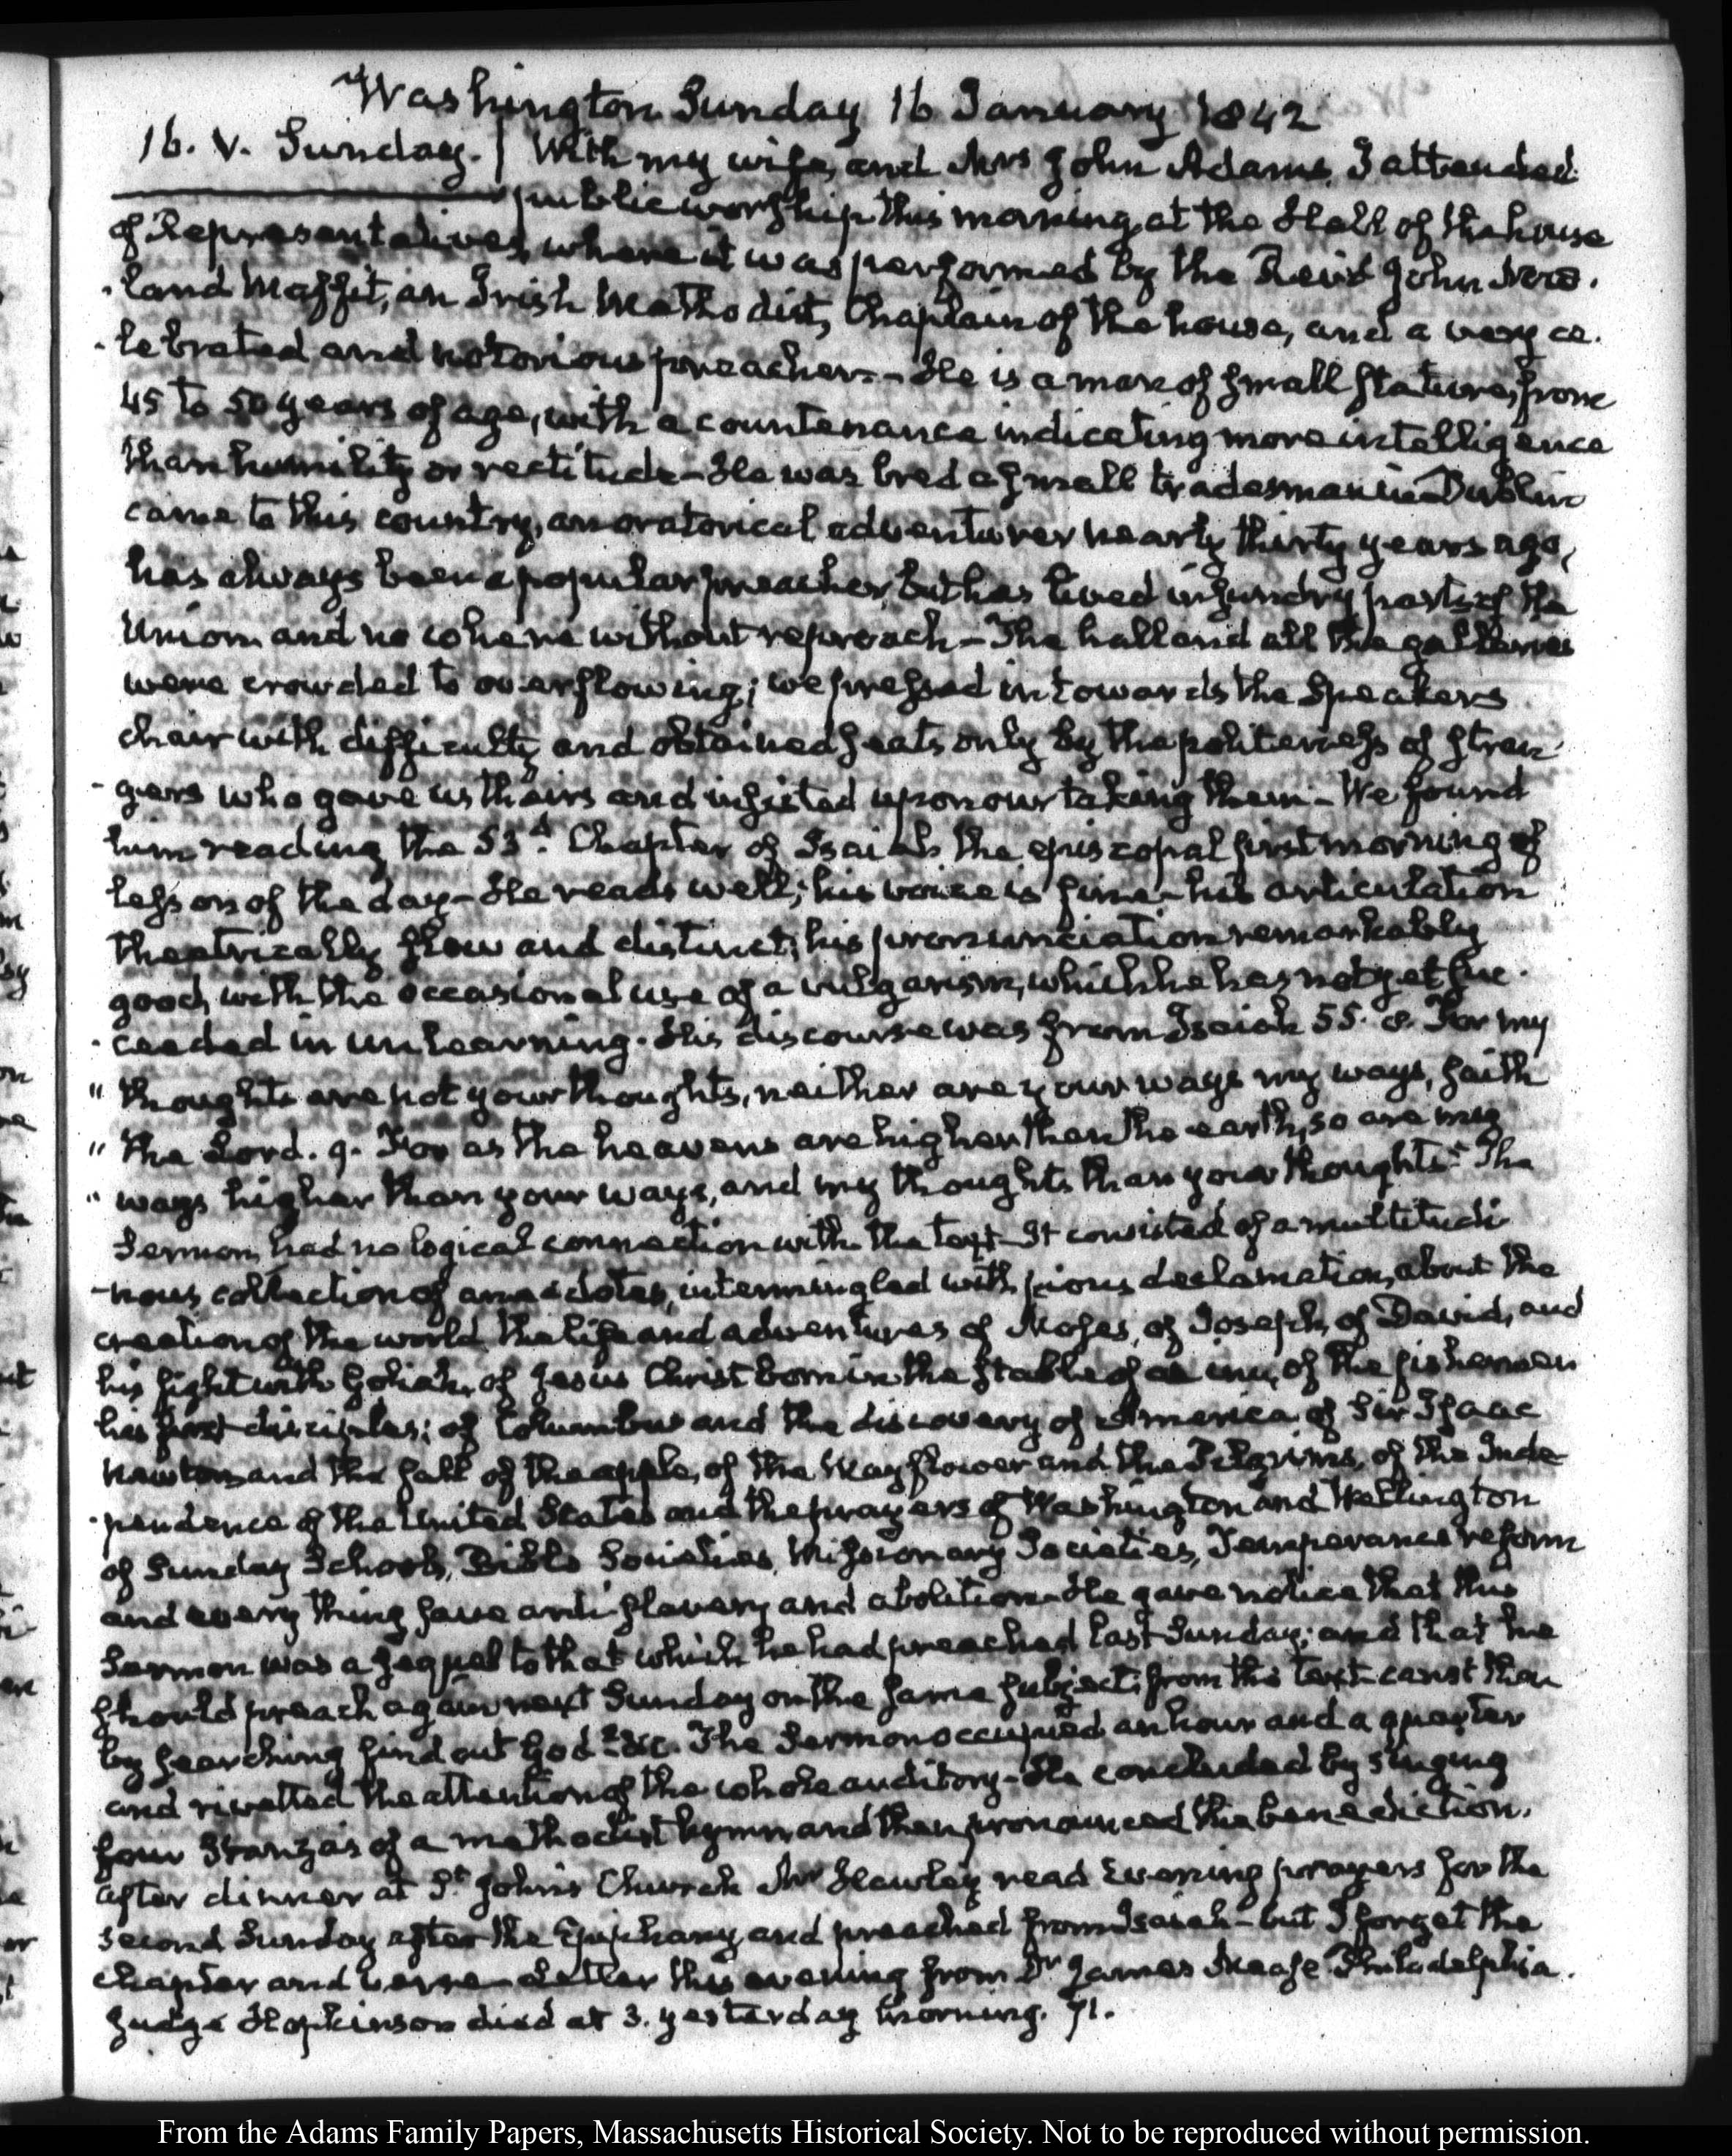 Washington Sunday 16 January 1842
16. V. Sunday. | With my wife, and Mrs John Adams, I attended
public worship this morning, at the Hall of the house
of Representatives, where it was performed by the Revd John New-
-land Maffit, an Irish Methodist, Chaplain of the house, and a very ce-
-lebrated and notorious preacher.- He is a man of small stature, from
45 to 50 years of age, with a countenance indicating more intelligence
than humility or rectitude - He was bred a small tradesman in Dublin
came to this country, an oratorical adventurer nearly thirty years ago,
has always been a popular preacher, but has lived in sundry parts of the
Union and no where without reproach - The hall and all the galleries
were crowded to overflowing; we pressed in towards the Speakers
chair with difficulty and obtained seats only by the politeness of stran-
-gers who gave us theirs and insisted upon our taking them - We found
him reading the 53d. Chapter of Isaiah the episcopal first morning of
lesson of the day - He reads well; his voice is fine - his articulation
theatrically slow and distinct; his pronunciation remarkably
good, with the occasional use of a vulgarism, which he has not yet suc-
-ceeded in unlearning. His discourse was from Isaiah 55. 8. For my
" thoughts are not your thoughts, neither are your ways my ways, saith
" the Lord. 9. For as the heavens are higher than the earth, so are my
" ways higher than your ways, and my thoughts than your thoughts." The
Sermon had no logical connection with the text - It consisted of a multitudi-
-nous collection of anecdotes, intermingled with pious declamation, about the
creation of the world, the life and adventures of Moses, of Joseph, of David, and
his fight with Goliah, of Jesus Christ born in the stable of an inn, of the fishermen
his first disciples; of Columbus and the discovery of America, of Sir Isaac
Newton and the fall of the apple, of the Mayflower and the Pilgrims, of the Inde-
-pendence of the United States and the prayers of Washington and Wellington
of Sunday Schools, Bible Societies, Missionary Societies, Temperance reform
and every thing save anti-slavery and abolition - He gave notice that this
Sermon was a sequel to that which he had preached last Sunday; and that he
should preach again next Sunday on the same subject; from the text canst thou
by searching find out God? &c. The Sermon occupied an hour and a quarter
and rivetted the attention of the whole auditory - He concluded by singing
four Stanzas of a methodist hymn and then pronounced the benediction.
after dinner at St. John's Church Mr Hawley read Evening prayers for the
second Sunday after the Epiphany and preached from Isaiah - but I forget the
chapter and verse - Letter this evening from Dr James Mease Philadelphia.
Judge Hopkinson died at 3. yesterday morning. 71.
From the Adams Family Papers, Massachusetts Historical Society. Not to be reproduced without permission.